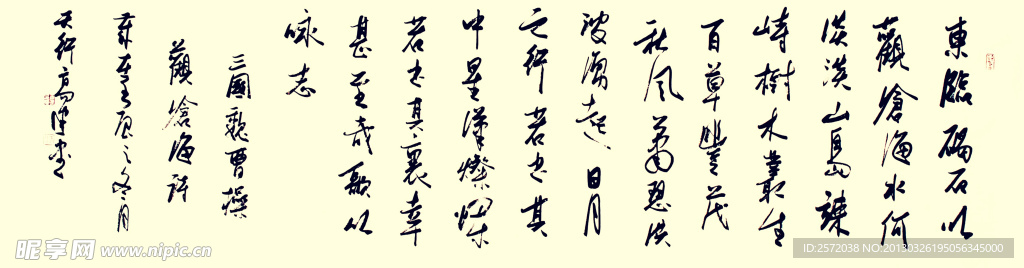 東臨碣石以
觀滄海水何
淡淡山島竦
峙樹木叢生
百草豐茂
秋風蕭瑟洪
波湧起日月
之行若出其
中星漢燦爛
若出其裏幸
甚至哉歌以
詠志
三國魏曹操
觀滄海詩
之冬月
天行
昵享网 www.nipic.cn
ID:2572038 NO:20130326195056345000